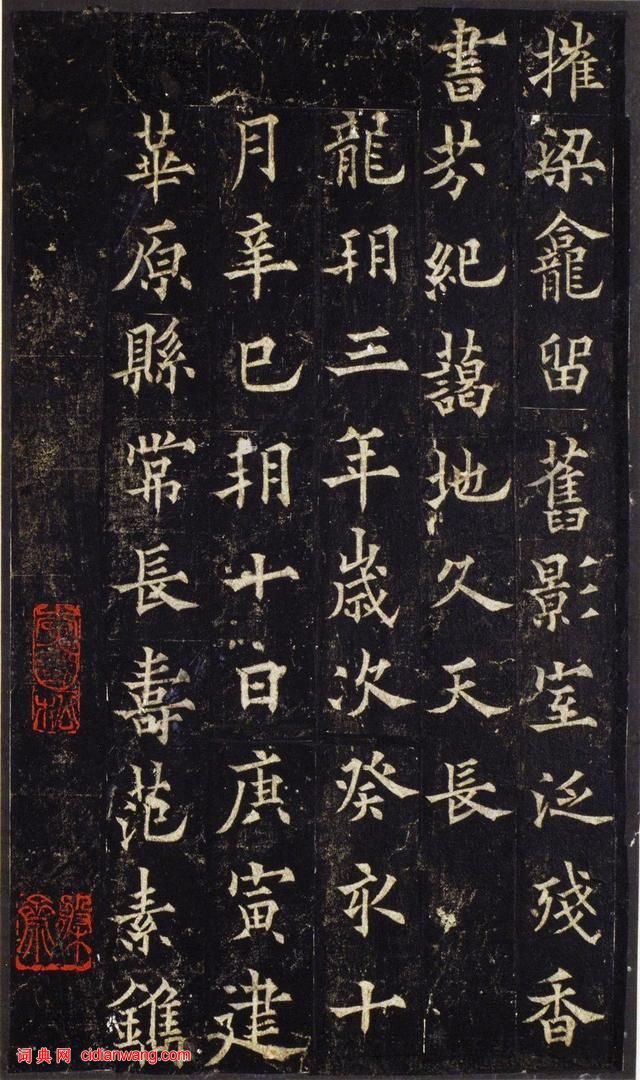 摧梁龕留舊影室泛殘香
書芬紀藹地久天長
龍朔三年歲次癸亥十
月辛巳朔十日庚寅建
華原縣常長壽范素鐫
词典网 cidianwang.com